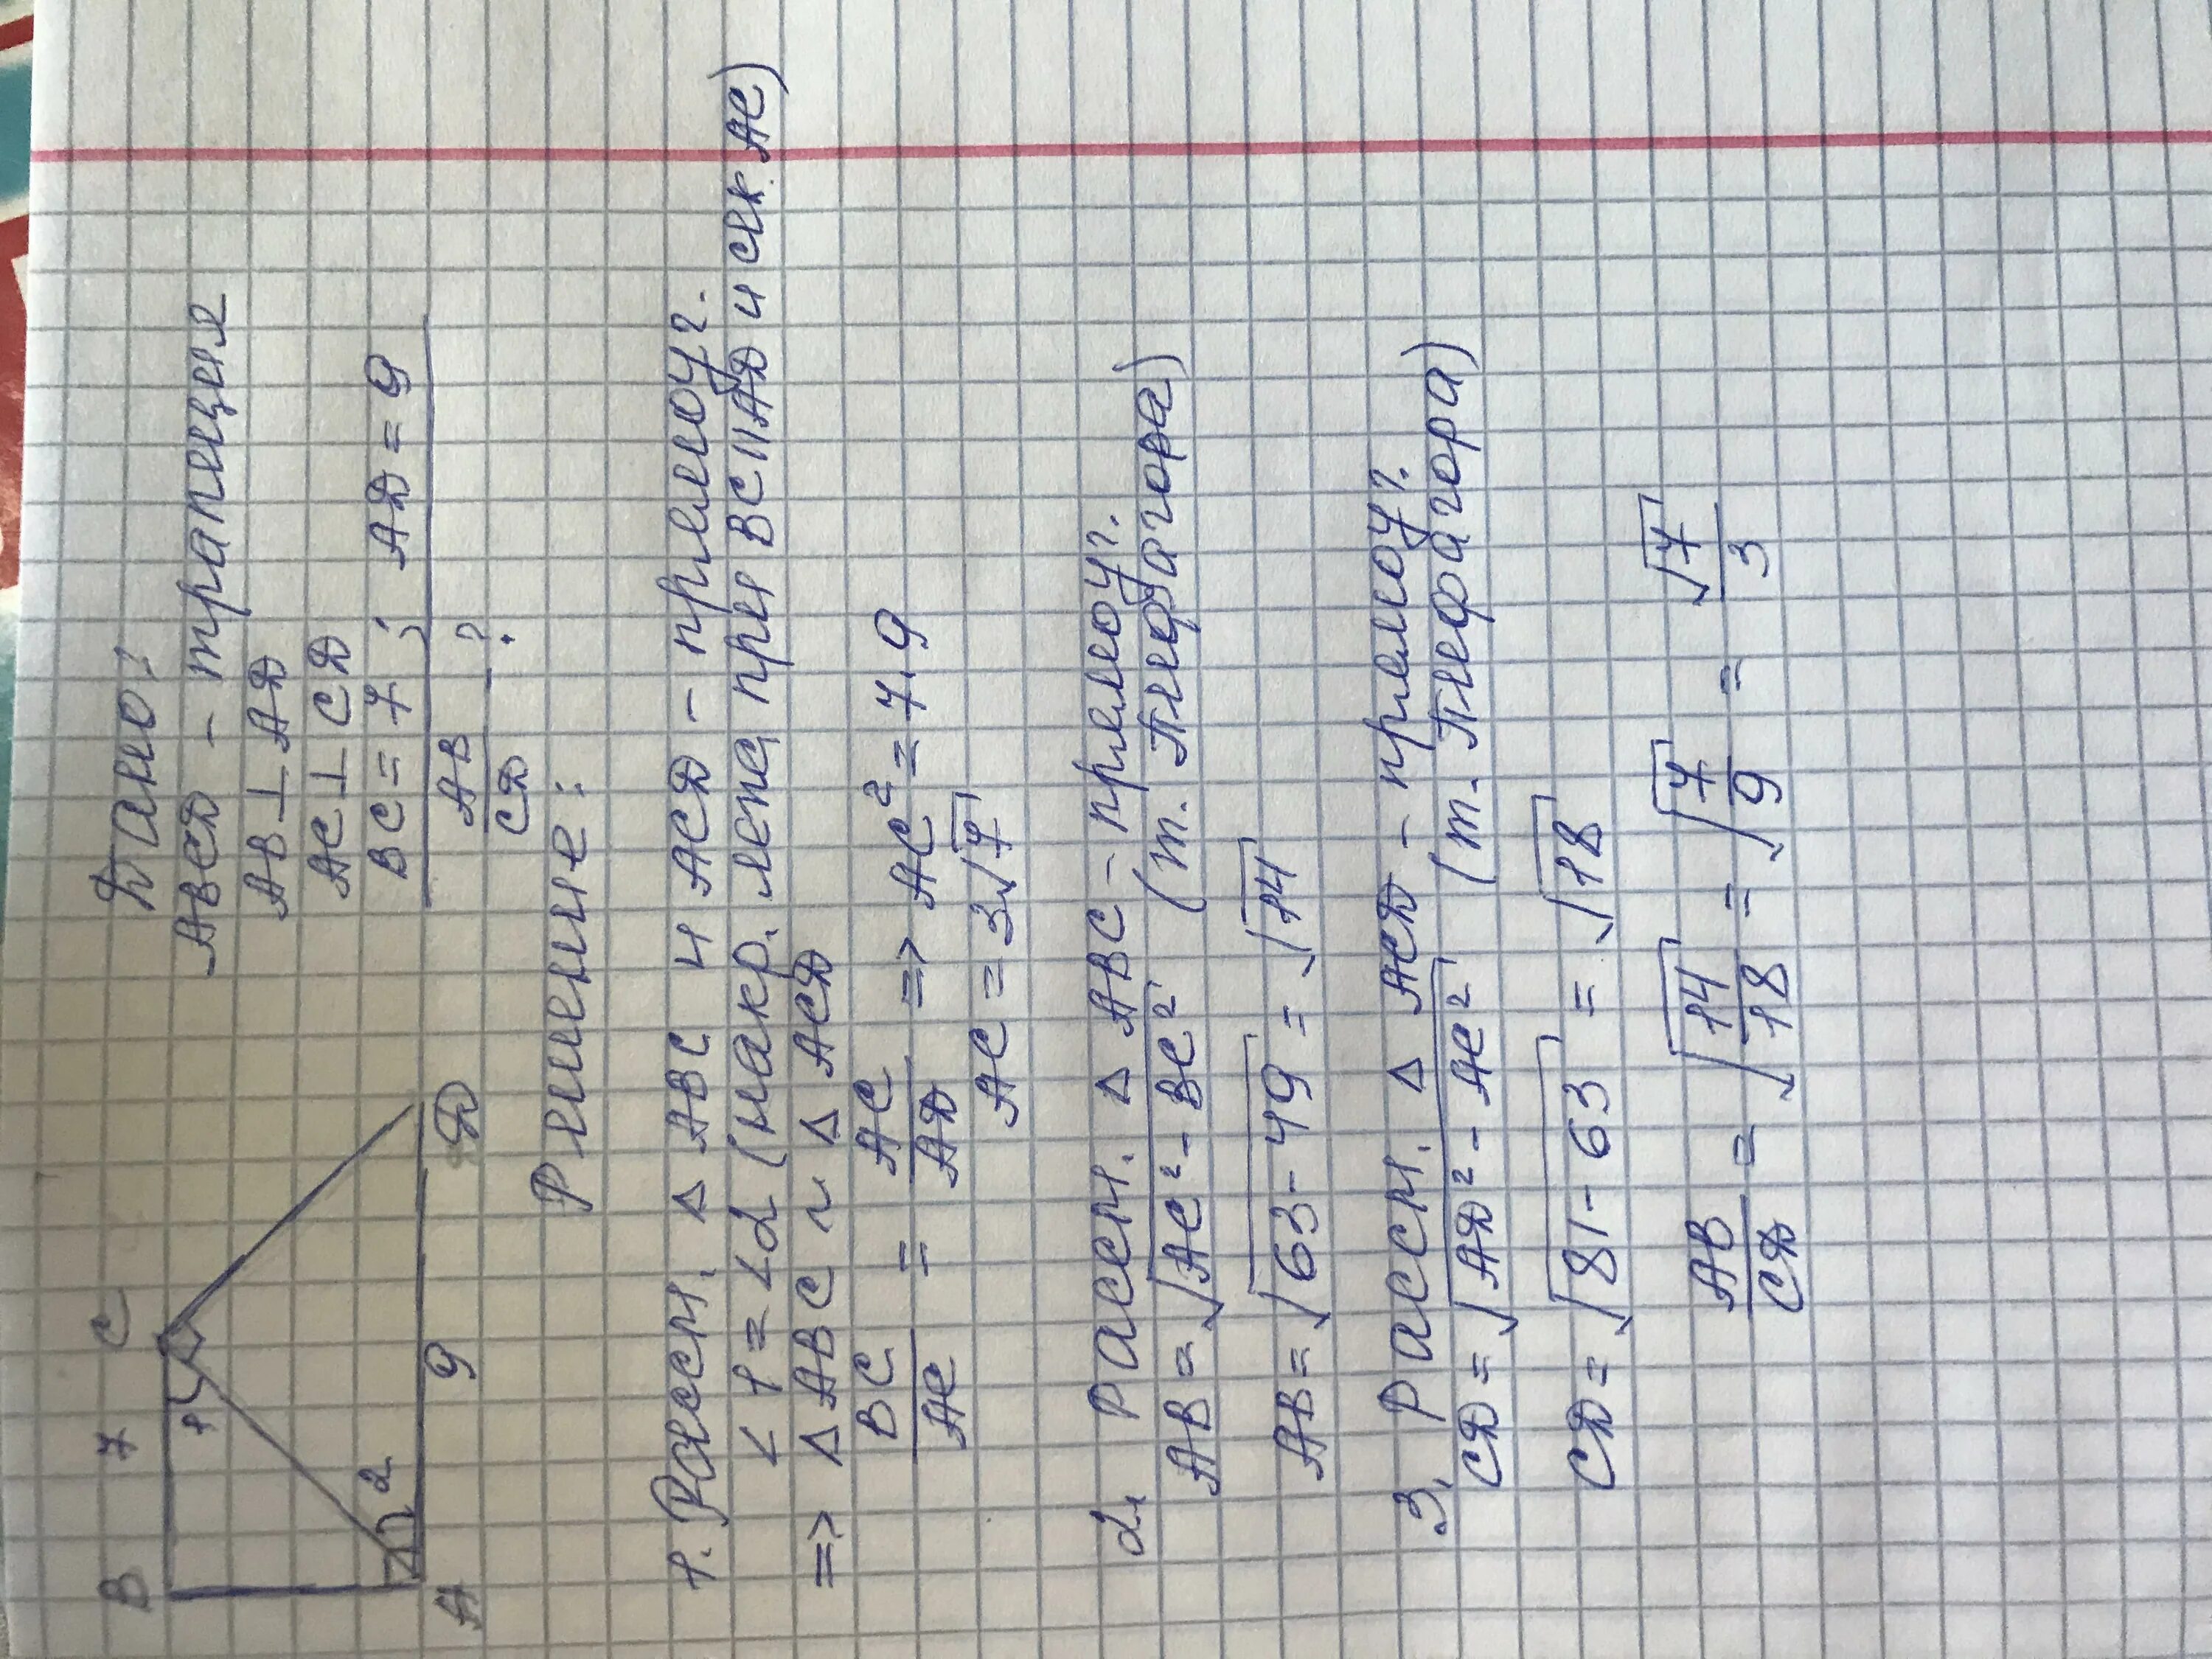 B 7 C
1
2
A 9 D
Дано:
ABCD - трапеция
AB ⊥ AD
AC ⊥ CD
BC = 7; AD = 9
AB/CD - ?
Решение:
1. Рассм. △ ABC и ACD - прямоуг.
∠1 = ∠2 (накр. леж при BC || AD и сек. AC)
=> △ ABC ~ △ ACD
BC/AC = AC/AD => AC² = 7.9
AC = 3√7
2. Рассм. △ ABC - прямоуг.
AB = √(AC² - BC²) (т. Пифагора)
AB = √(63 - 49) = √14
3. Рассм. △ ACD - прямоуг.
CD = √(AD² - AC²) (т. Пифагора)
CD = √(81 - 63) = √18
AB/CD = √(14/18) = √(7/9) = √7/3